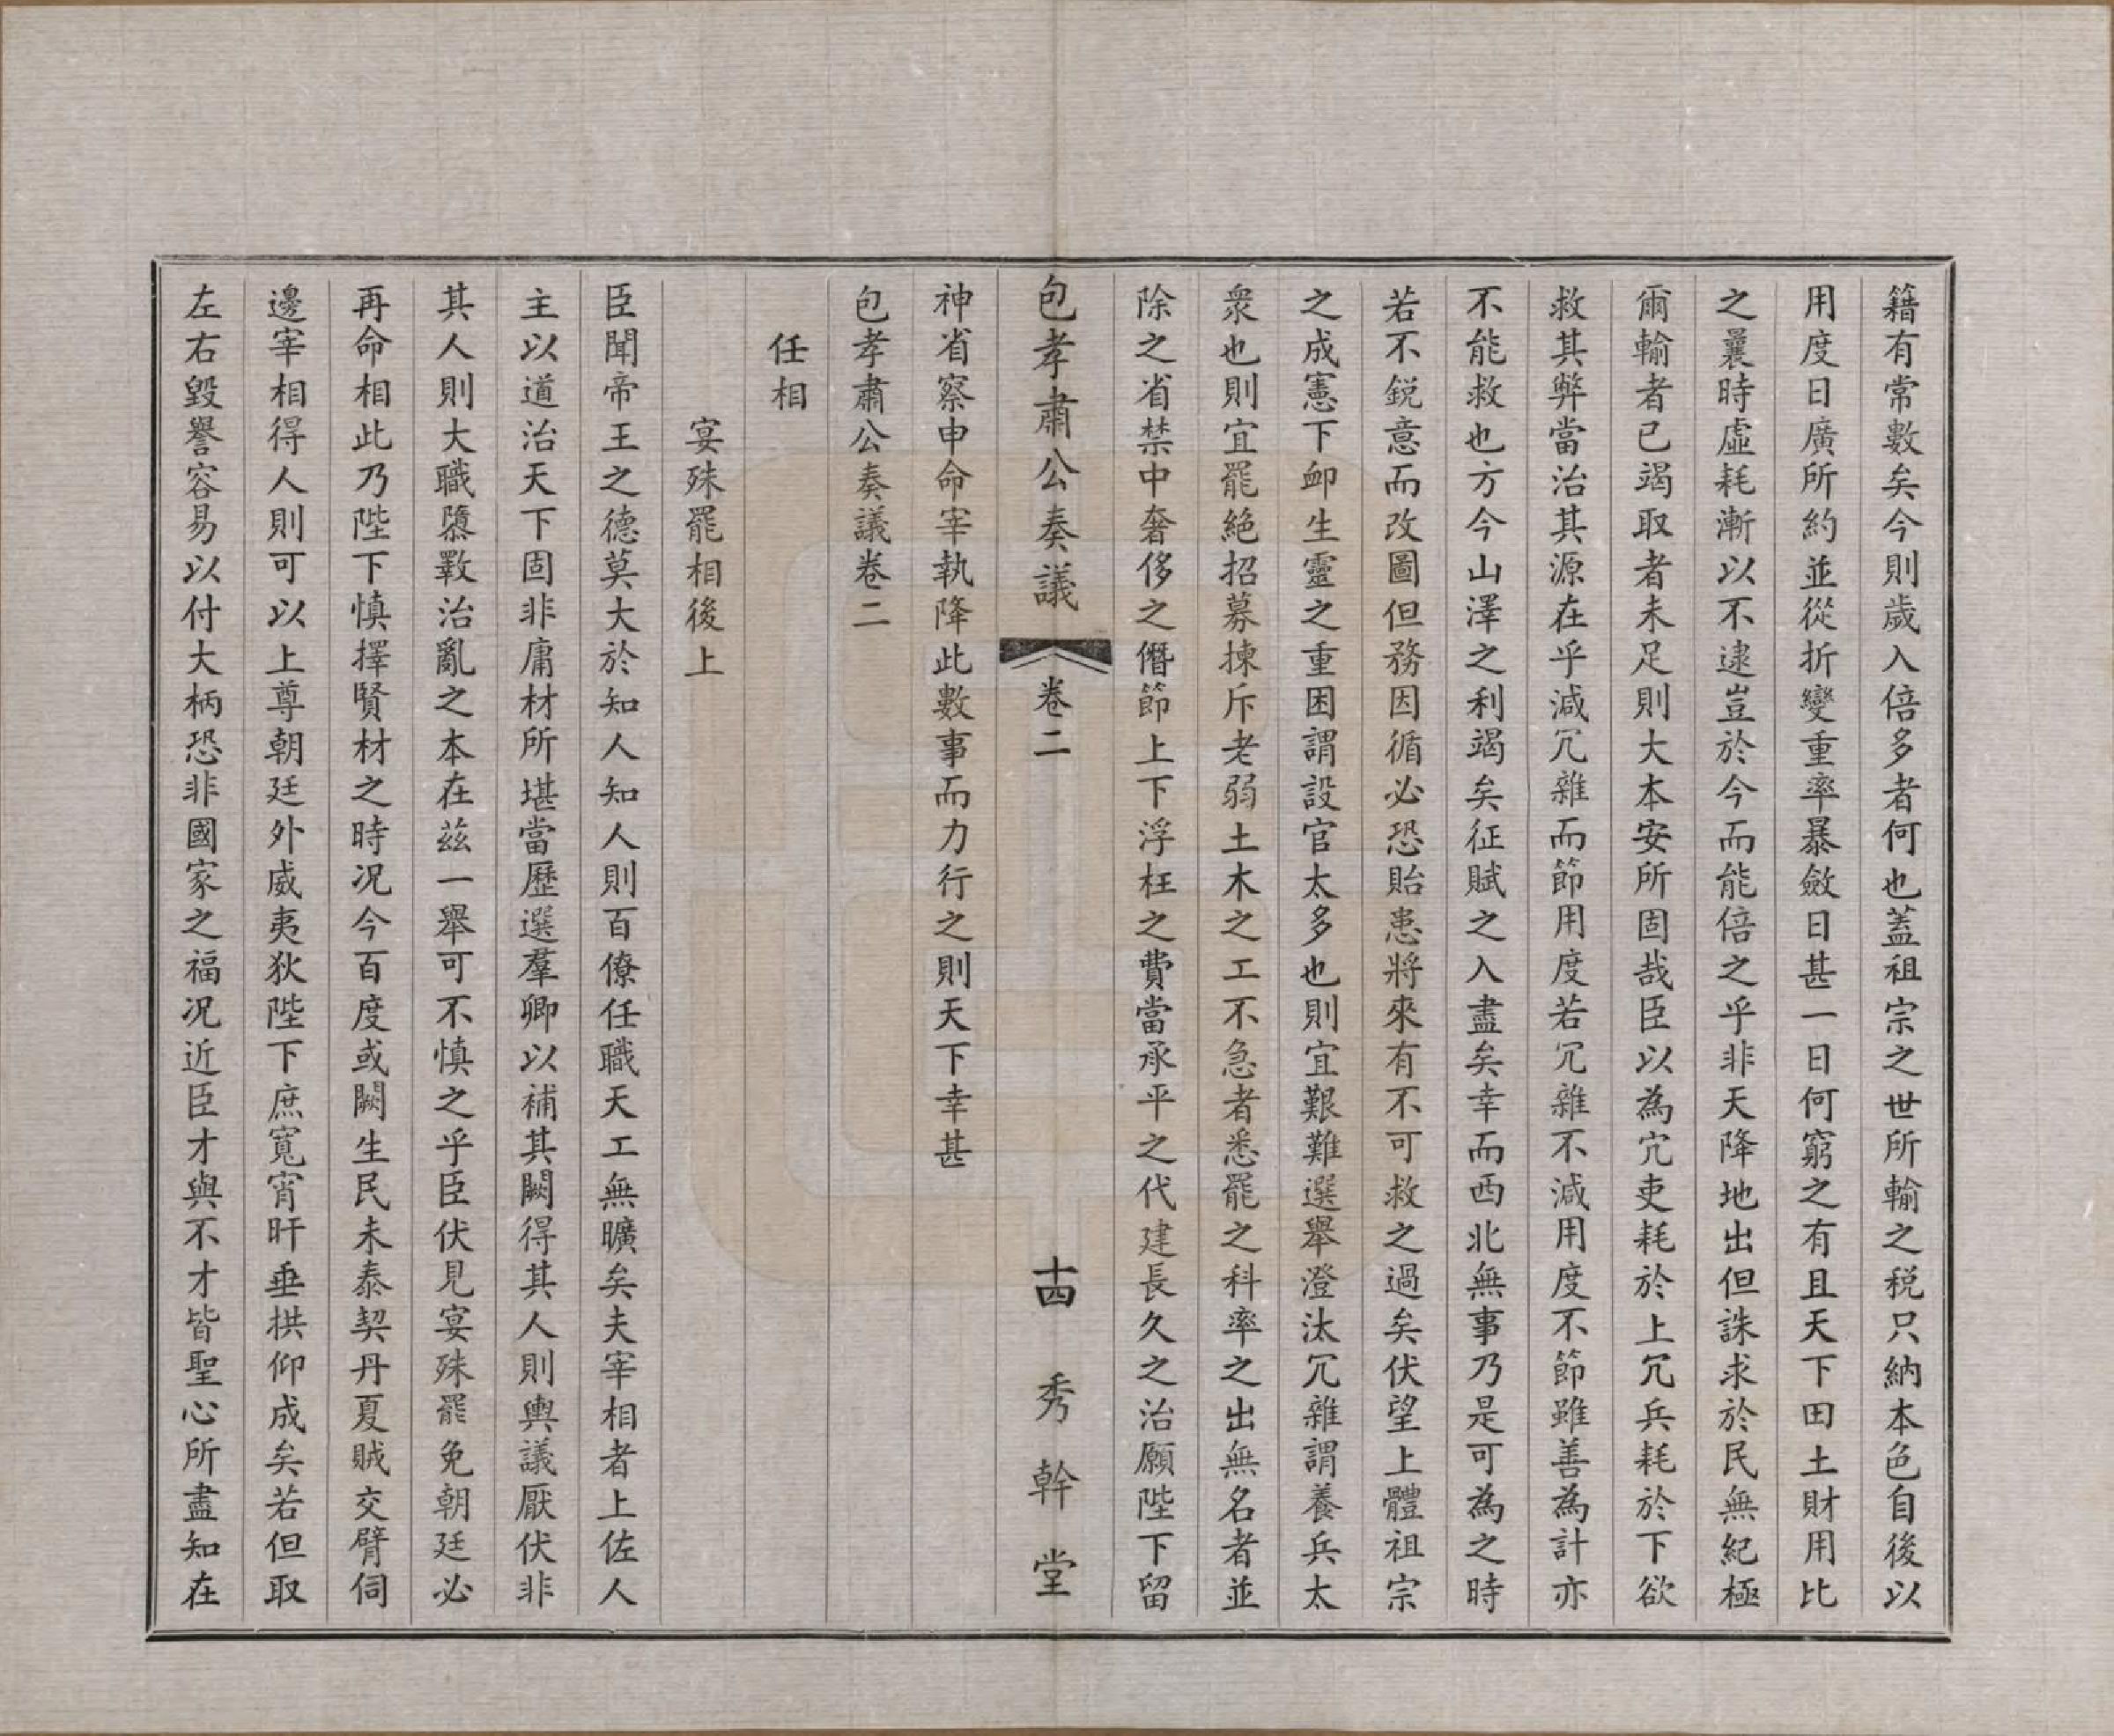 籍有常數矣今則歲入倍多者何也蓋祖宗之世所輸之税只納本色自後以
用度日廣所約並從折變重率暴斂日甚一日何窮之有且天下田土財用比
之曩時虛耗漸以不逮豈於今而能倍之乎非天降地出但誅求於民無紀極
爾輸者已竭取者未足則大本安所固哉臣以為宂吏耗於上冗兵耗於下欲
救其弊當治其源在乎減冗雜而節用度若冗雜不減用度不節雖善為計亦
不能救也方今山澤之利竭矣征賦之入盡矣幸而西北無事乃是可為之時
若不鋭意而改圖但務因循必恐貽患將來有不可救之過矣伏望上體祖宗
之成憲下卹生靈之重困謂設官太多也則宜艱難選舉澄汰冗雜謂養兵太
衆也則宜罷絶招募揀斥老弱土木之工不急者悉罷之科率之出無名者並
除之省禁中奢侈之僭節上下浮枉之費當承平之代建長久之治願陛下留
包孝肅公奏議 卷二 十四 秀幹堂
神省察申命宰執降此數事而力行之則天下幸甚
包孝肅公奏議卷二
任相
宴殊罷相後上
臣聞帝王之德莫大於知人知人則百僚任職天工無曠矣夫宰相者上佐人
主以道治天下固非庸材所堪當歷選羣卿以補其闕得其人則輿議厭伏非
其人則大職隳斁治亂之本在兹一舉可不慎之乎臣伏見宴殊罷免朝廷必
再命相此乃陛下慎擇賢材之時况今百度或闕生民未泰契丹夏賊交臂伺
邊宰相得人則可以上尊朝廷外威夷狄陛下庶寬宵旰垂拱仰成矣若但取
左右毀譽容易以付大柄恐非國家之福况近臣才與不才皆聖心所盡知在